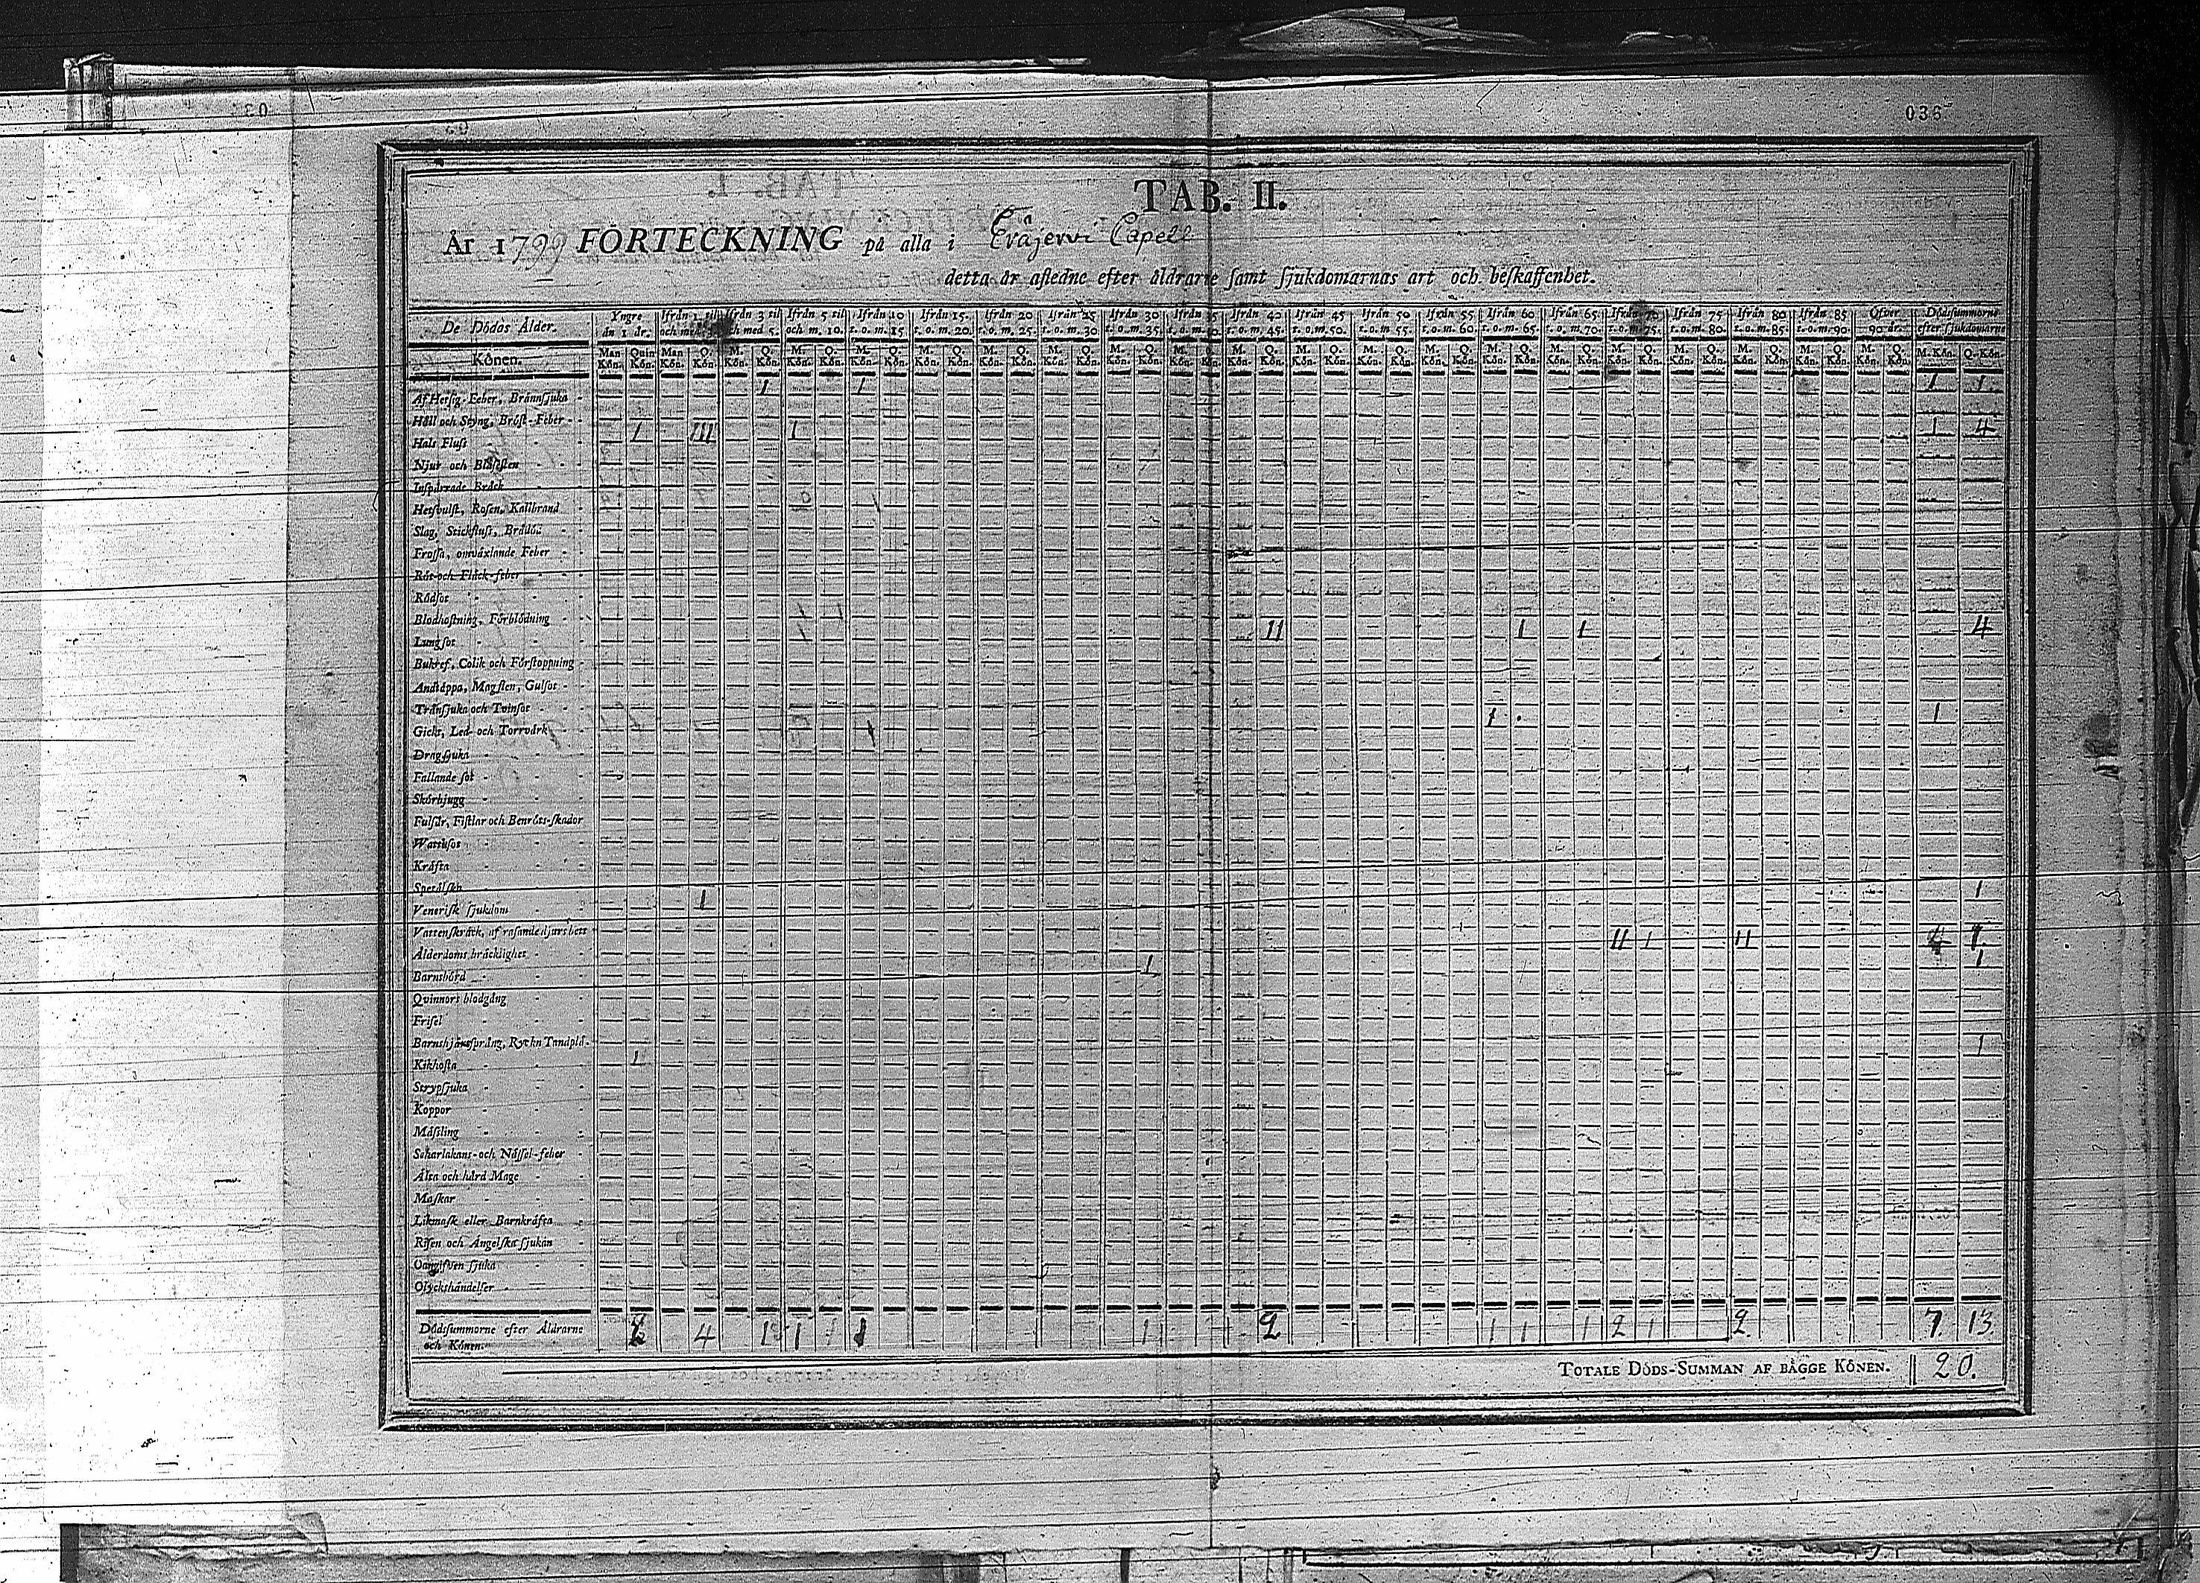 036
TAB. II.
År 1799 FÖRTECKNING på alla i Eräjerwi Capell
detta år afledne efter åldrarne samt sjukdomarnas art och beskaffenhet.
De Dödas Ålder. Yngre än 1 år. Ifrån 1 til och med 3 Ifrån 3 til och med 5. Ifrån 5 til och m. 10. Ifrån 10 t. o. m. 15 Ifrån 15 t. o. m. 20. Ifrån 20 t. o. m. 25. Ifrån 25 t. o. m. 30 Ifrån 30 t. o. m. 35. Ifrån 35 t. o. m. 40. Ifrån 40 t. o. m. 45. Ifrån 45 t. o. m. 50. Ifrån 50 t. o. m. 55. Ifrån 55 t. o. m. 60. Ifrån 60 t. o. m. 65. Ifrån 65 t. o. m. 70. Ifrån 70 t. o. m. 75. Ifrån 75 t. o. m. 80. Ifrån 80 t. o. m. 85. Ifrån 85 t. o. m. 90. Öfver 90 år. Dödssummorne efter sjukdomarne
Könen. Man Kön. Quin Kön. Man Kön. Q. Kön. M. Kön. Q. Kön. M. Kön. Q. Kön. M. Kön. Q. Kön. M. Kön. Q. Kön. M. Kön. Q. Kön. M. Kön. Q. Kön. M. Kön. Q. Kön. M. Kön. Q. Kön. M. Kön. Q. Kön. M. Kön. Q. Kön. M. Kön. Q. Kön. M. Kön. Q. Kön. M. Kön. Q. Kön. M. Kön. Q. Kön. M. Kön. Q. Kön. M. Kön. Q. Kön. M. Kön. Q. Kön. M. Kön. Q. Kön. M. Kön. Q. Kön. M. Kön. Q. Kön.
Af Hetsig Feber, Brännsjuka 1 1 1 1
Håll och Styng, Bröst-Feber 1 111 1 1 4
Hals Fluss
Njur och Blåsesten
Inspärrade Bråck
Hetsvulst, Rosen, Kallbrand
Slag, Stickfluss, Brådöd
Frossa, omväxlande Feber
Röt-och Fläck-feber
Rödsot
Blodhostning, Förblödning
Lungsot 11 1 1 4
Bukref, Colik och Förstoppning
Andtäppa, Magsten, Gulsot
Trånsjuka och Tvinsot
Gickt, Led- och Torrvärk 1 1
Dragsjuka
Fallande sot
Skörbjugg
Fulsår, Fistlar och Benröts-skador
Wattusot
Kräfta
Spetälska
Venerisk sjukdom 1 1
Vattenskräck, af rasande djurs bett
Ålderdoms bräcklighet 11 1 11 4 1
Barnsbörd 1 1
Qvinnors blodgång
Frisel
Barnshjärtsprång, Ryckn Tandplå-
Kikhosta 1 1
Strypsjuka
Koppor
Mässling
Scharlakans-och Nässel-feber
Älta och hård Mage
Maskar
Likmask eller Barnkräfta
Risen och Angelska sjukan
Oangifven sjuka
Olyckshändelser
Dödssummorne efter Åldrarne och Könen. 2 4 1 1 1 1 2 1 1 1 2 1 2 7 13
TOTALE DÖDS-SUMMAN AF BÄGGE KÖNEN. 20.